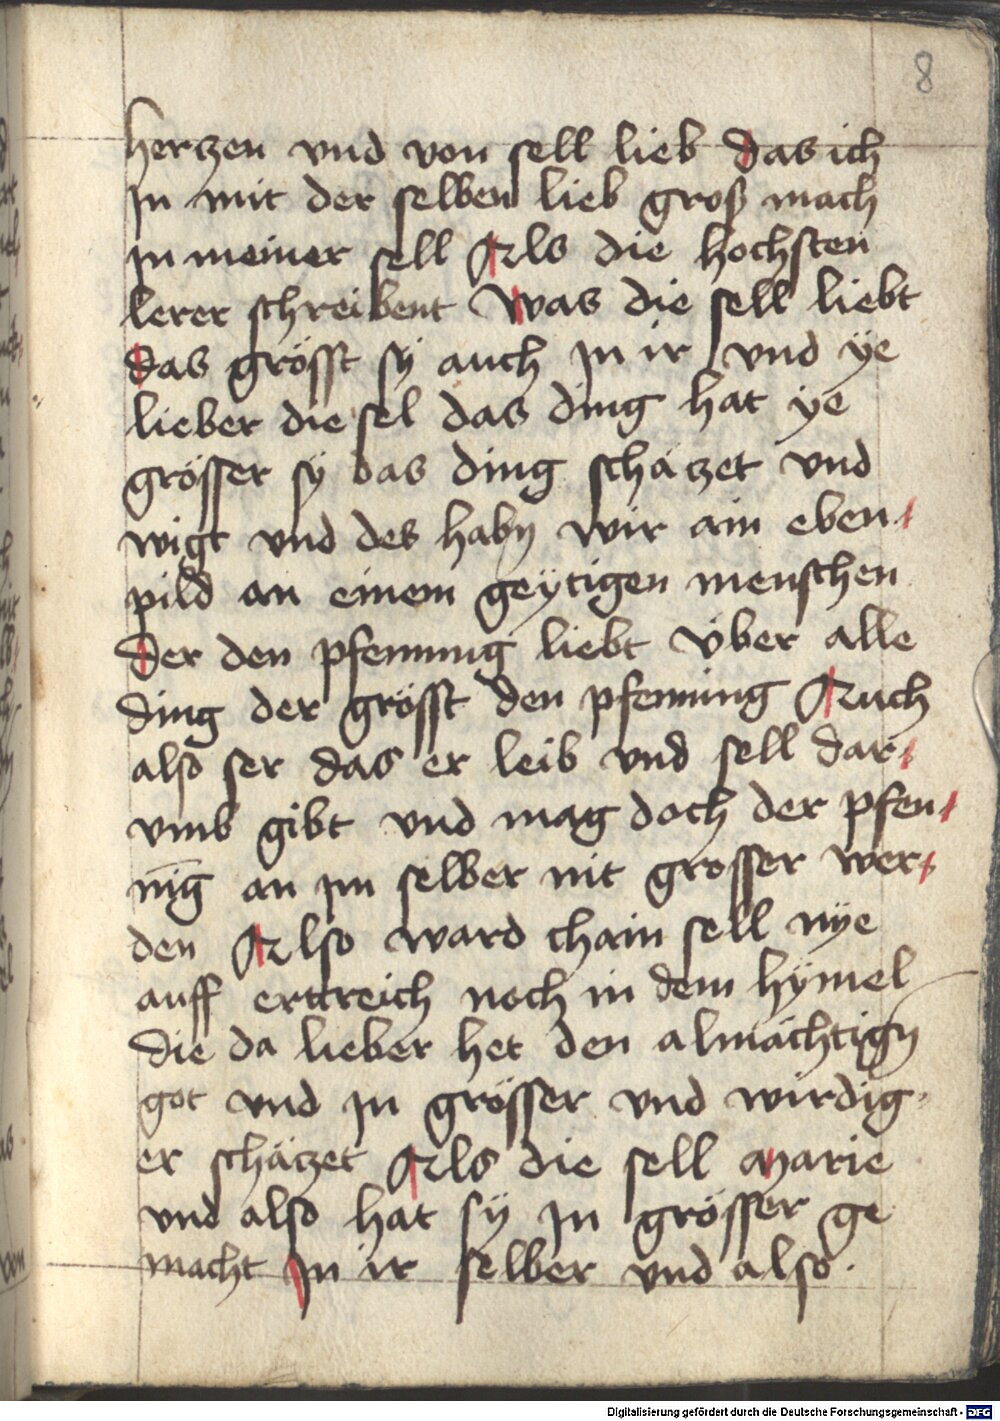 8
hertzen vnd von sell lieb das ich
In mit der selben lieb groß mach
In meiner sell Als die hochsten
lerer schreibent Was die sell liebt
das grösst sÿ auch In ir / vnd ÿe
lieber die sel das ding hat ÿe
grösser sÿ das ding schäczet vnd
wigt vnd des habn wir ain eben-
pild an einem geÿtigen menschen
der den pfenning liebt über alle
ding der grösst den pfenning Auch
also ser das er leib vnd sell dar-
vmb gibt vnd mag doch der pfen-
nīg an im selber nit grosser wer-
den Also ward chain sell nÿe
auff erttreich noch in dem hÿmel
die da lieber het den almächtign
got vnd In grösser vnd wirdig-
er schäczet Als die sell Marie
vnd also hat sÿ In grösser ge
macht In ir selber vnd also.
Digitalisierung gefördert durch die Deutsche Forschungsgemeinschaft - DFG